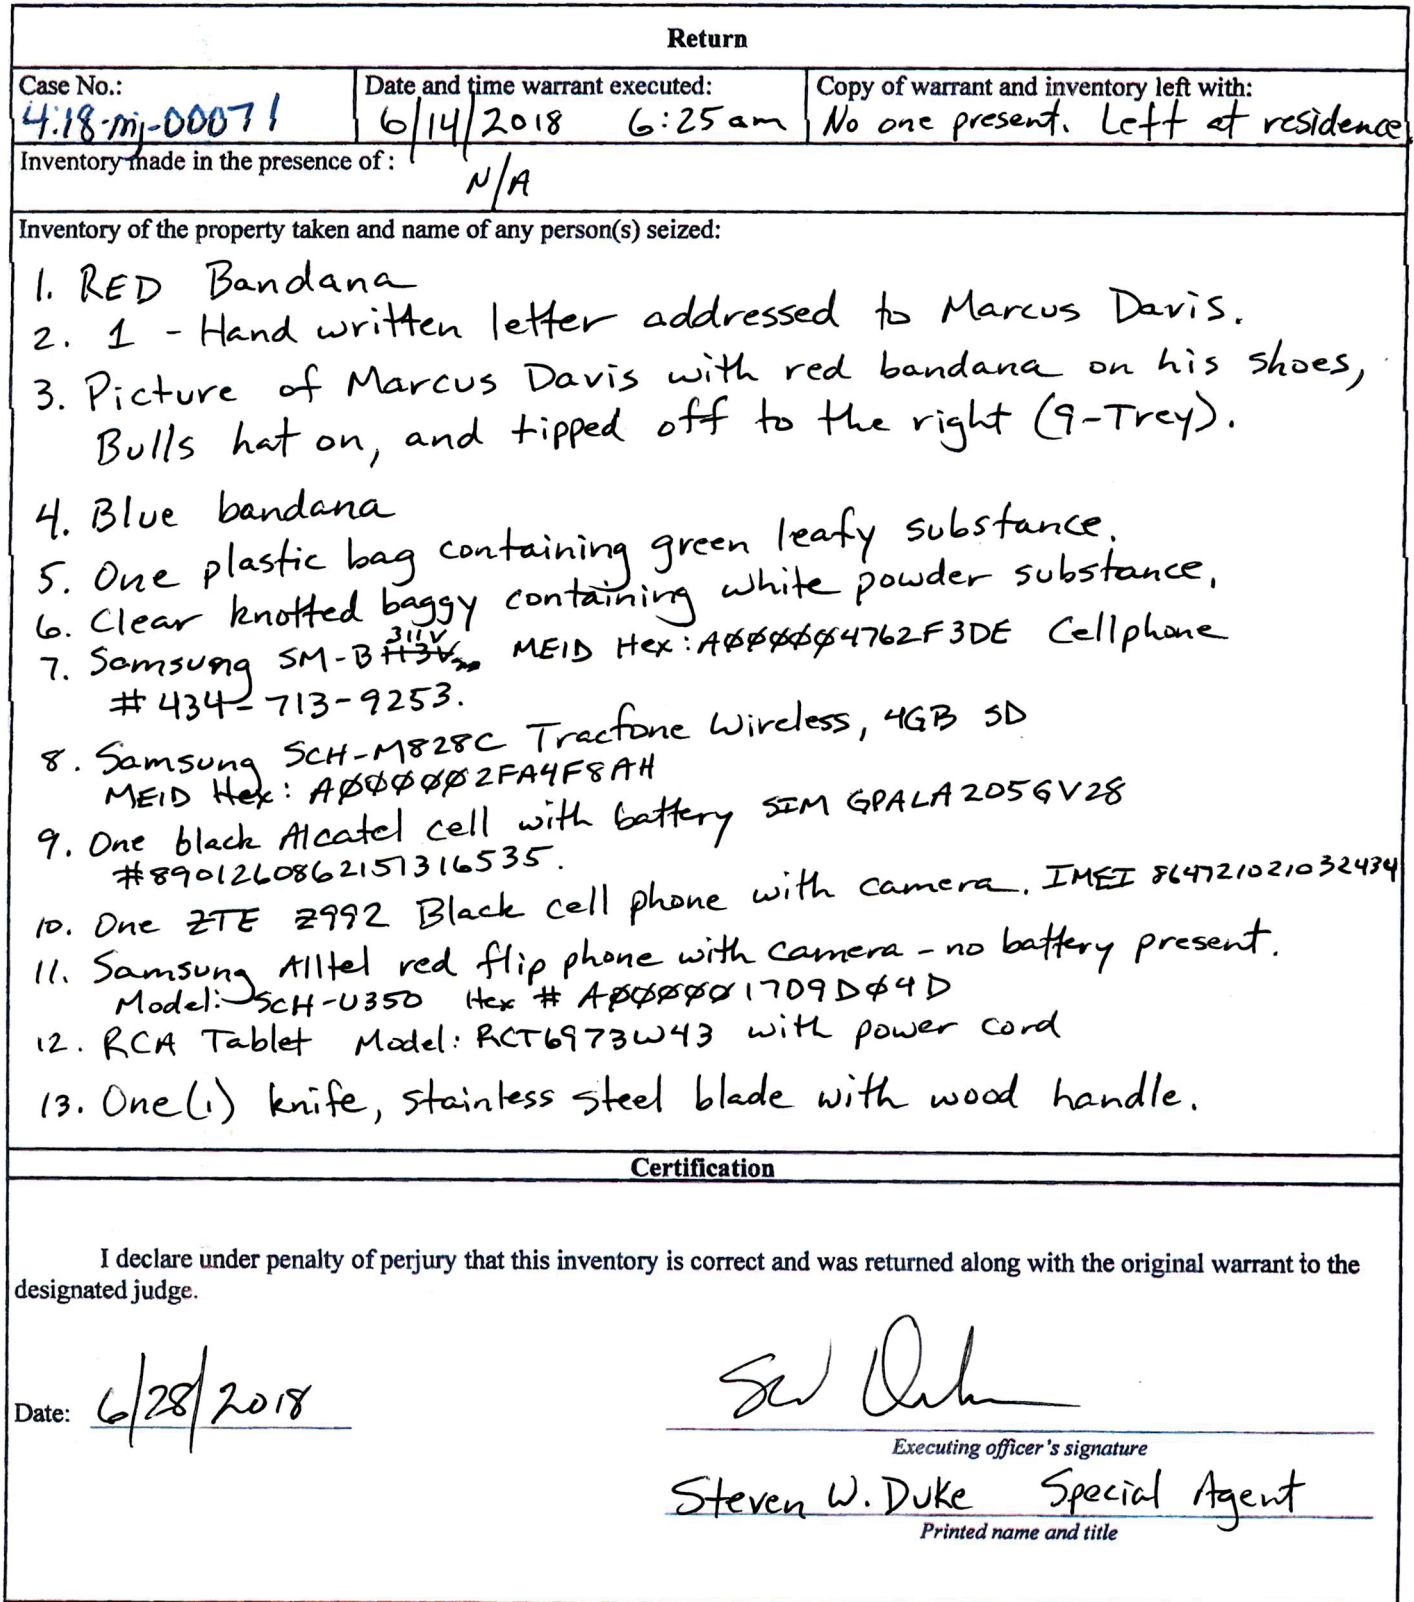 Return
Case No.: Date and time warrant executed: Copy of warrant and inventory left with:
4:18-mj-00071 6/14/2018 6:25am No one present. Left at residence.
Inventory made in the presence of :
N/A
Inventory of the property taken and name of any person(s) seized:
1. RED Bandana
2. 1 - Hand written letter addressed to Marcus Davis.
3. Picture of Marcus Davis with red bandana on his shoes,
Bulls hat on, and tipped off to the right (9-Trey).
4. Blue bandana
5. One plastic bag containing green leafy substance.
6. Clear knotted baggy containing white powder substance.
7. Samsung SM-B311V MEID Hex: A000004762F3DE Cellphone
# 434-713-9253.
8. Samsung SCH-M828C Tracfone Wireless, 4GB SD
MEID Hex: A000002FA4F8AH
9. One black Alcatel cell with battery SIM GPALA205GV28
#8901260862151316535.
10. One ZTE Z992 Black cell phone with camera. IMEI 864721021032434
11. Samsung Alltel red flip phone with camera - no battery present.
Model: SCH-U350 Hex # A000001709D04D
12. RCA Tablet Model: RCT6973W43 with power cord
13. One (1) knife, stainless steel blade with wood handle.
Certification
I declare under penalty of perjury that this inventory is correct and was returned along with the original warrant to the
designated judge.
Date: 6/28/2018
Executing officer's signature
Steven W. Duke Special Agent
Printed name and title